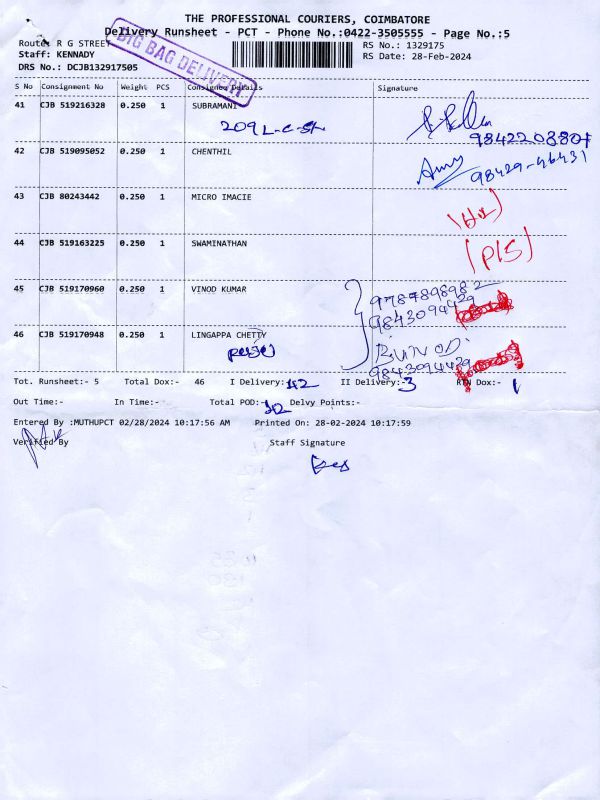 THE PROFESSIONAL COURIERS, COIMBATORE
Delivery Runsheet - PCT - Phone No.:0422-3505555 - Page No.:5
Route: R G STREET
RS No.: 1329175
Staff: KENNADY
RS Date: 28-Feb-2024
DRS No.: DCJB132917505
BIG BAG DELIVERY
S No Consignment No Weight PCS Consignee Details Signature
41 CJB 519216328 0.250 1 SUBRAMANI
209 L-C-St
9842203807
42 CJB 519095052 0.250 1 CHENTHIL
98429-46431
43 CJB 80243442 0.250 1 MICRO IMACIE
44 CJB 519163225 0.250 1 SWAMINATHAN
(P/S)
45 CJB 519170960 0.250 1 VINOD KUMAR
9787898982
9843094429
46 CJB 519170948 0.250 1 LINGAPPA CHETTY
9843094429
Tot. Runsheet:- 5 Total Dox:- 46 I Delivery: II Delivery:-3 RTN Dox:- 1
Out Time:- In Time:- Total POD:- Delvy Points:-
Entered By :MUTHUPCT 02/28/2024 10:17:56 AM Printed On: 28-02-2024 10:17:59
Verified By Staff Signature